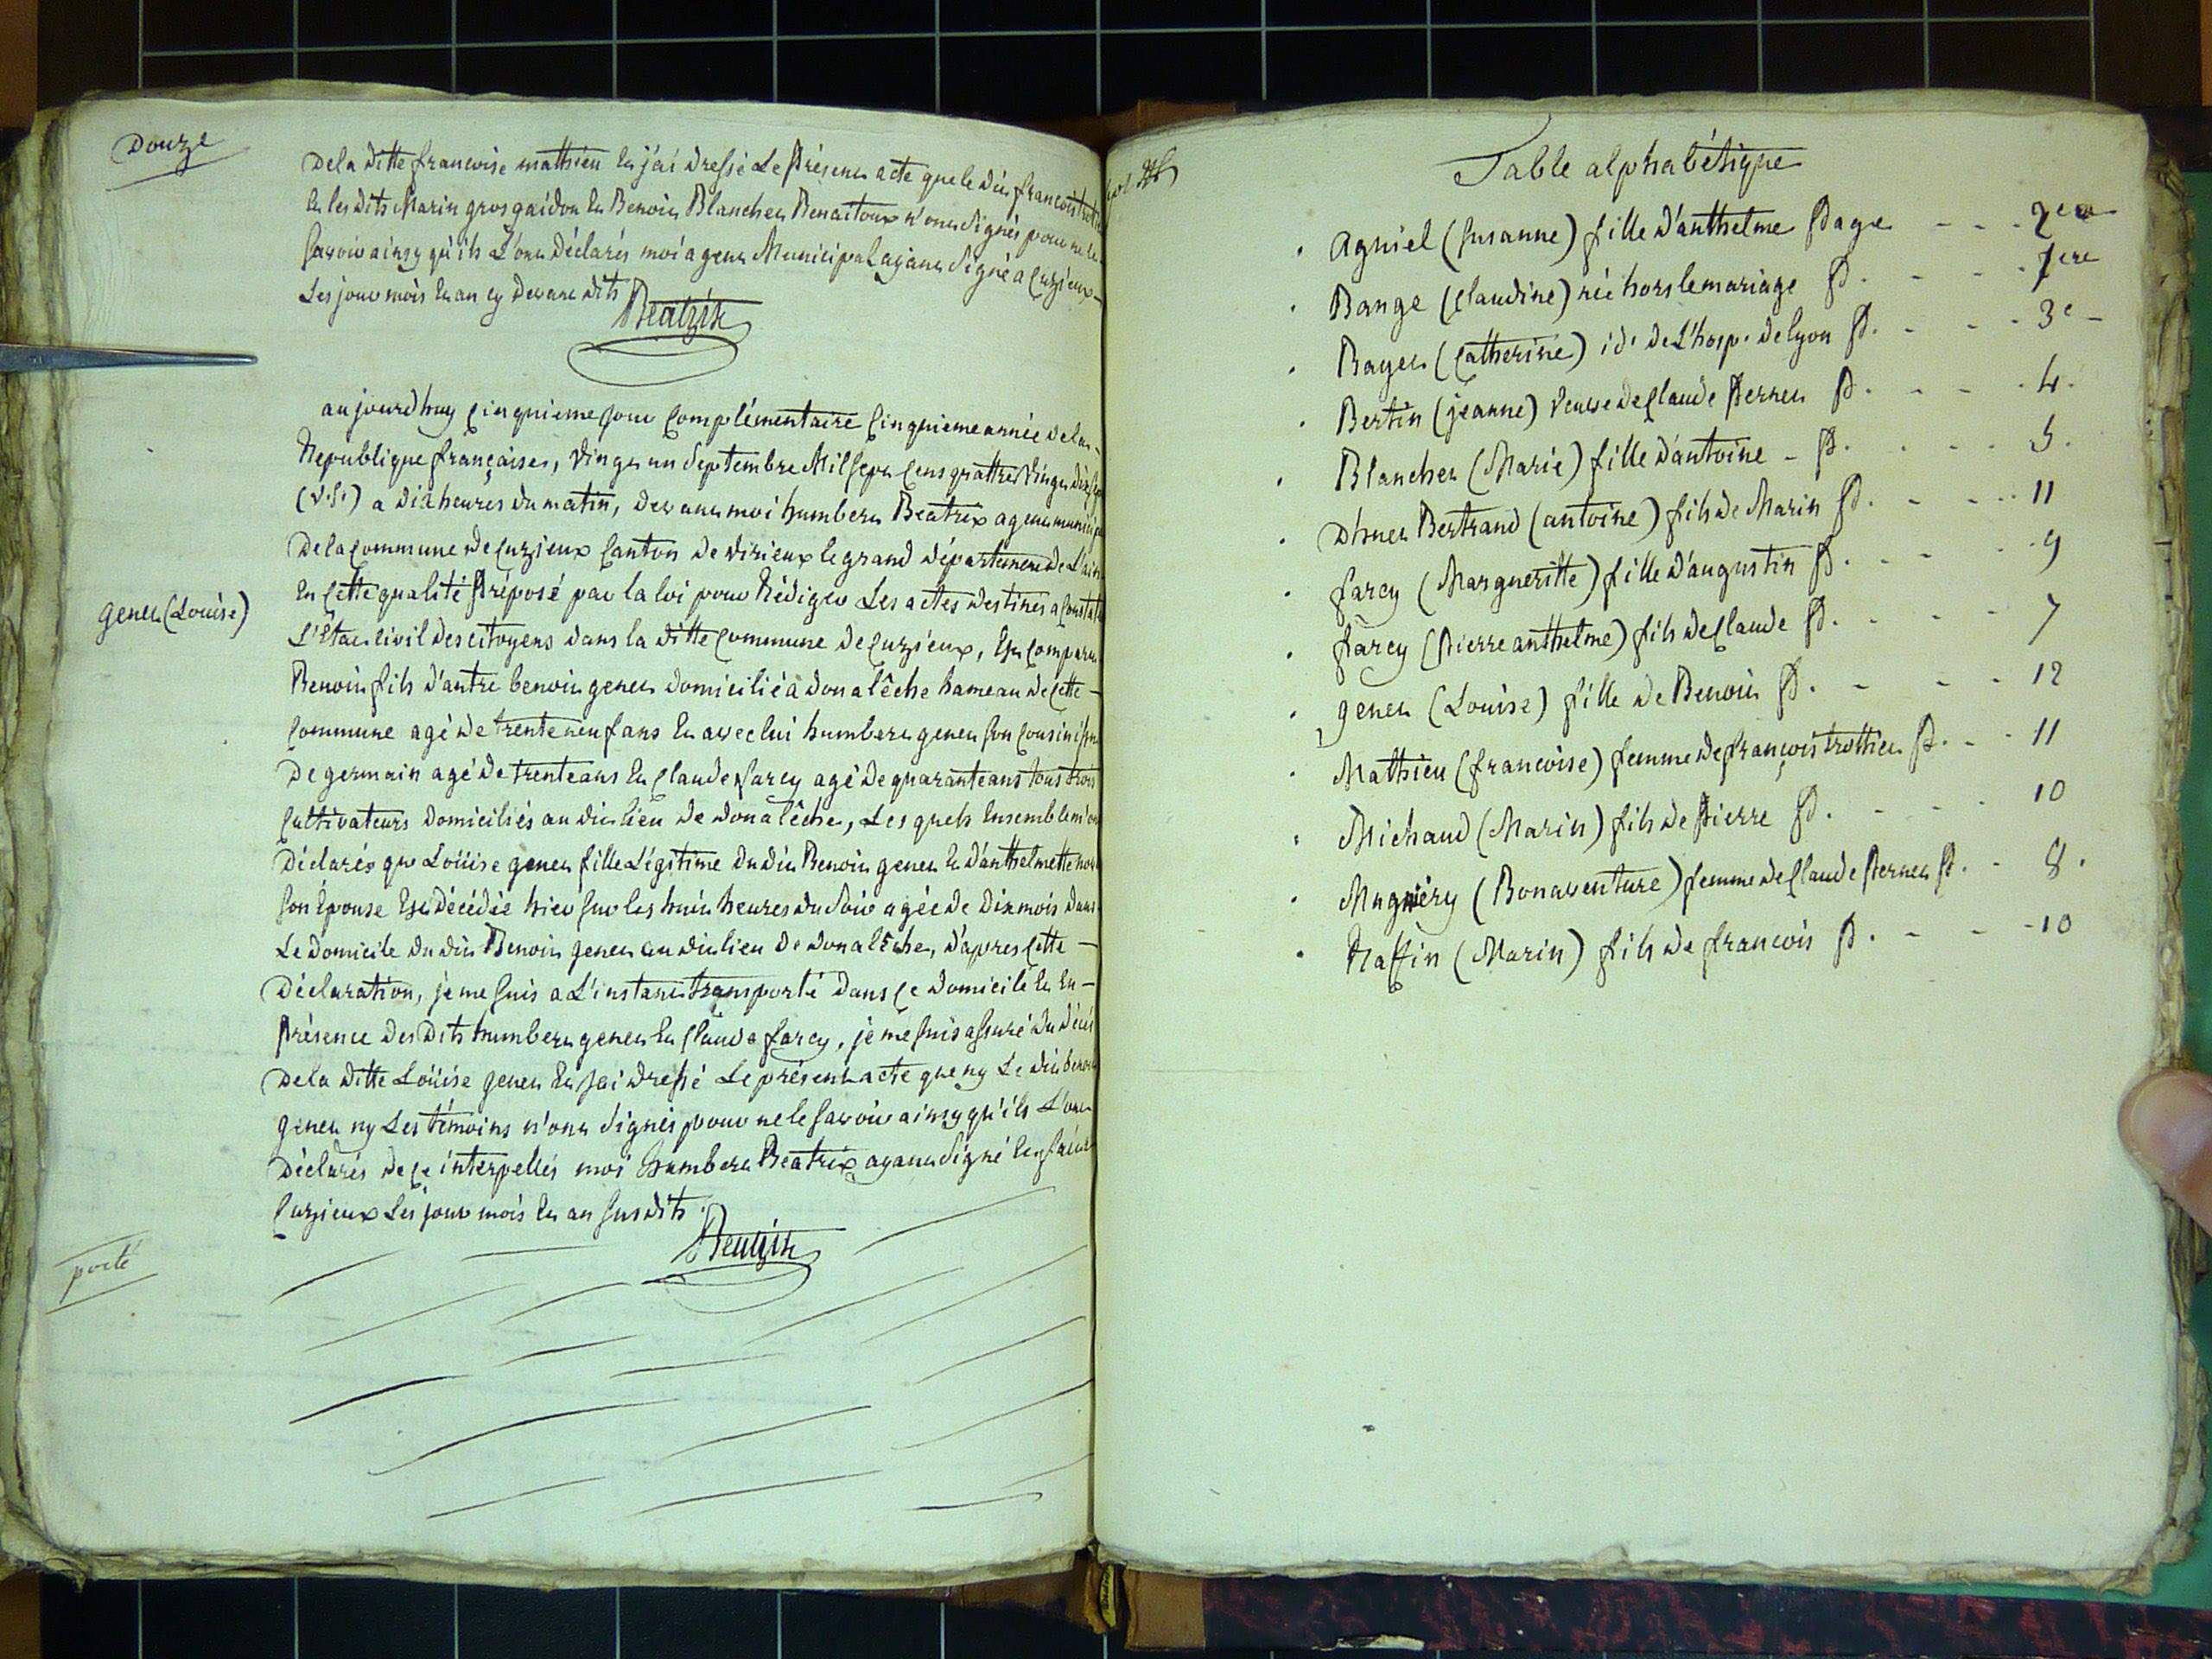 Douze
Dela ditte francoise mathieu Et j'ai dressé Le Présent acte que le dit francois
Et les dits Marin gros gaidon Et Benoit Blanchet Benaitoux n'ont signés pour ne le
savoir ainsy qu'ils L'ont Déclarés moi agent Municipal ayant signé a Cuzieux
Les jour mois Et an cy devant dits
Beatrix
aujourdhuy Cinquieme jour Complémentaire Cinquieme année dela
Republique française, vingt un Septembre Mil sept Cens quattre vingt dix sept
(V.S.) a dix heures du matin, devant moi humbert Beatrix agent municipal
Dela commune de Cuzieux Canton de virieux le grand département de L'ain
En Cette qualité Préposé par la loi pour Rédiger Les actes destinés a Constater
genet (Louise)
L'Etat civil des citoyens dans la ditte Commune de Cuzieux, Est comparu
Benoit fils d'autre benoit genet domicilié a donalêche hameau de Cette
Commune agé de trente neuf ans Et avec lui humbert genet son Cousin issu
De germain agé de trente ans Et Claude farcy agé de quarante ans tous trois
Cultivateurs domiciliés au dit lieu de donalêche, Lesquels Ensemble m'ont
Déclarés que Loüise genet fille Légitime du dit Benoit genet Et d'anthelmette
son Epouse Est Décédée hier sur les huit heures du soir agée de Dix mois dans
Le domicile du dit Benoit genet au dit lieu de donalêche, d'apres Cette
Déclaration, je me suis a L'instant transporté dans ce domicile Et En
Présence des Dits humbert genet Et Claude farcy, je me suis assuré du décés
Dela ditte Loüise genet Et j'ai dressé Le présent acte que ny Le dit benoit
genet ny Les témoins n'ont signés pour ne le savoir ainsy qu'ils L'ont
Déclarés de ce interpellés moi humbert Beatrix ayant signé
Cuzieux Les jour mois Et an susdits.
Beatrix
porté
Table alphabétique
. Agniel (susanne) fille d'anthelme Page - - - 2eme
. Bange (claudine) née hors le mariage P. - - - 1ere
. Bayet (Catherine) id. de L'hosp. de lyon P. - - - 3e -
. Bertin (jeanne) veuve de Claude Pernet P. - - - 4.
. Blanchet (Marie) fille d'antoine - P. - - - 5.
. Dhuet Bertrand (antoine) fils de Marin P. - - - 11
. farcy (Margueritte) fille d'augustin P. - - - 9
. farcy (Pierre anthelme) fils de Claude P. - - - 7
. genet (Louise) fille de Benoit P. - - - 12
. Mathieu (francoise) femme de françois trottier P. - - 11
. Michaud (Marin) fils de Pierre P. - - - 10
. Mugniery (Bonaventure) femme de Claude Pernet P. - 8.
. Raffin (Marin) fils de francois P. - - - 10